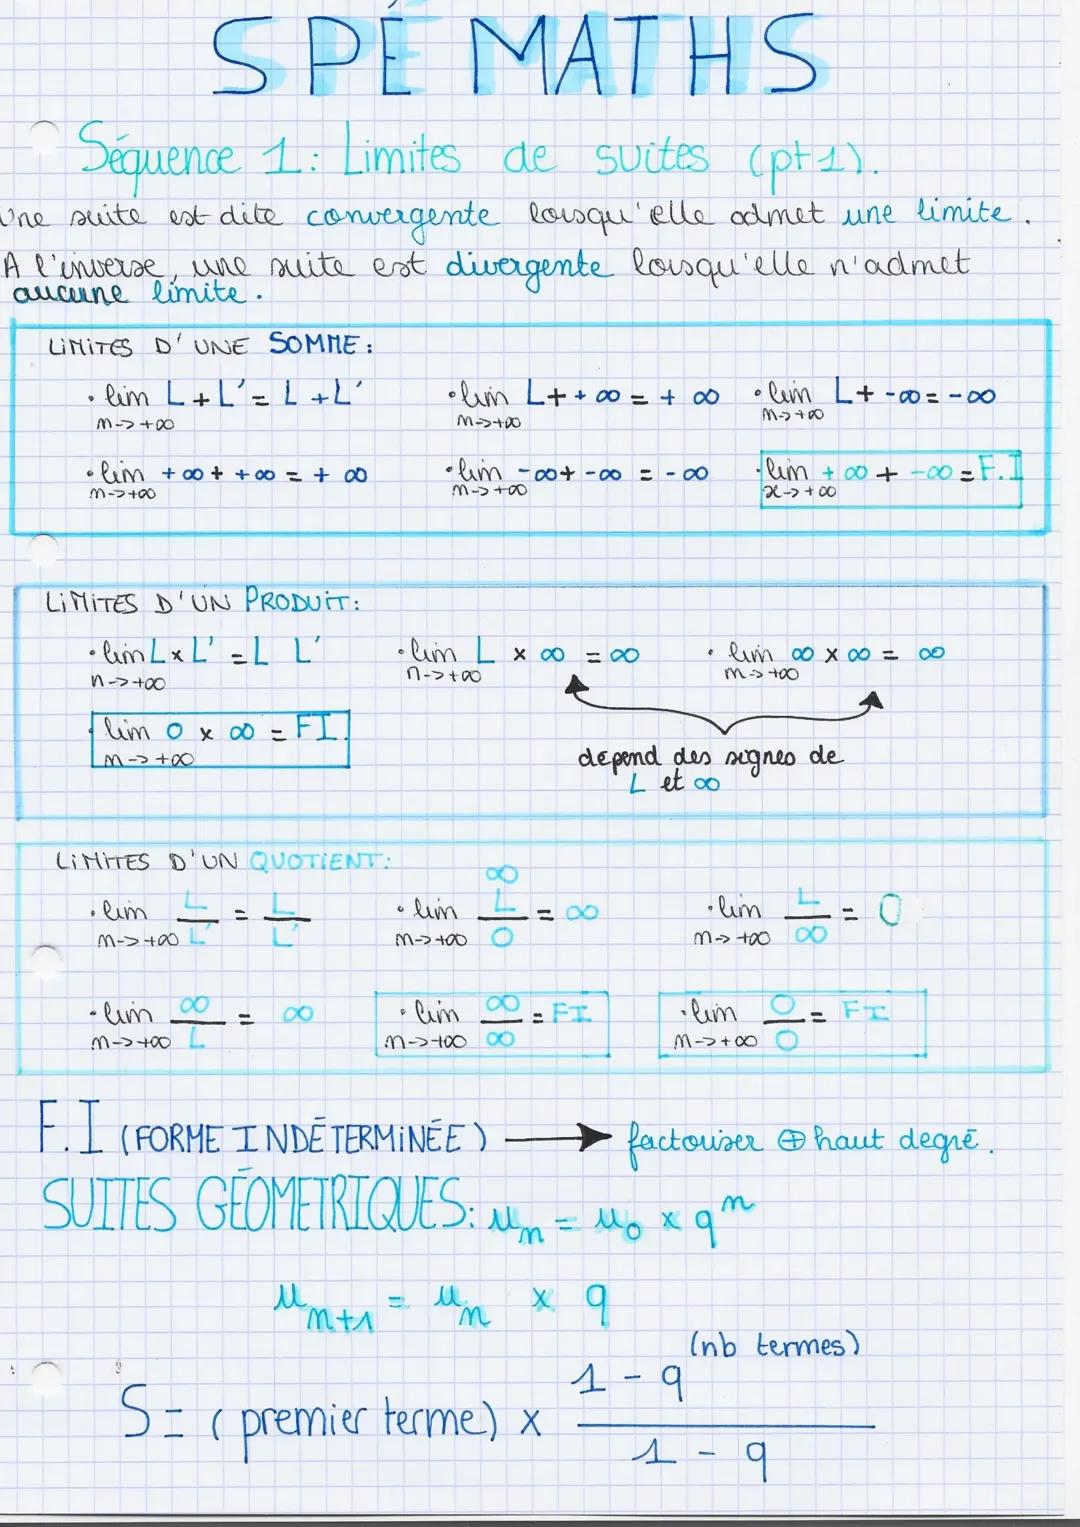 SPÉ MATHS
Séquence 1: Limites de suites (pt1).
Une suite est dite convergente lorsqu'elle admet une limite.
A l'inverse, une suite est divergente lorsqu'elle n'admet
aucune limite.
LIMITES D'UNE SOMME:
• lim L + L' = L + L' • lim L + +∞ = +∞ • lim L + -∞ = -∞
n->+∞ n->+∞ n->+∞
• lim +∞ + +∞ = +∞ • lim -∞ + -∞ = -∞ • lim +∞ + -∞ = F.I
n->+∞ n->+∞ x->+∞
LIMITES D'UN PRODUIT:
• lim L x L' = L L' • lim L x ∞ = ∞ • lim ∞ x ∞ = ∞
n->+∞ n->+∞ n->+∞
lim 0 x ∞ = FI.
n->+∞
dépend des signes de
L et ∞
LIMITES D'UN QUOTIENT:
∞
• lim L/L' = L/L' • lim L/0 = ∞ • lim L/∞ = 0
n->+∞ n->+∞ n->+∞
• lim ∞/L = ∞ • lim ∞/∞ = FI • lim 0/0 = FI
n->+∞ n->+∞ n->+∞
F.I (FORME INDÉTERMINÉE) → factoriser ⊕ haut degré.
SUITES GÉOMETRIQUES: uₙ = u₀ x qⁿ
uₙ₊₁ = uₙ x q
(nb termes)
1 - q
S = (premier terme) x
1 - q